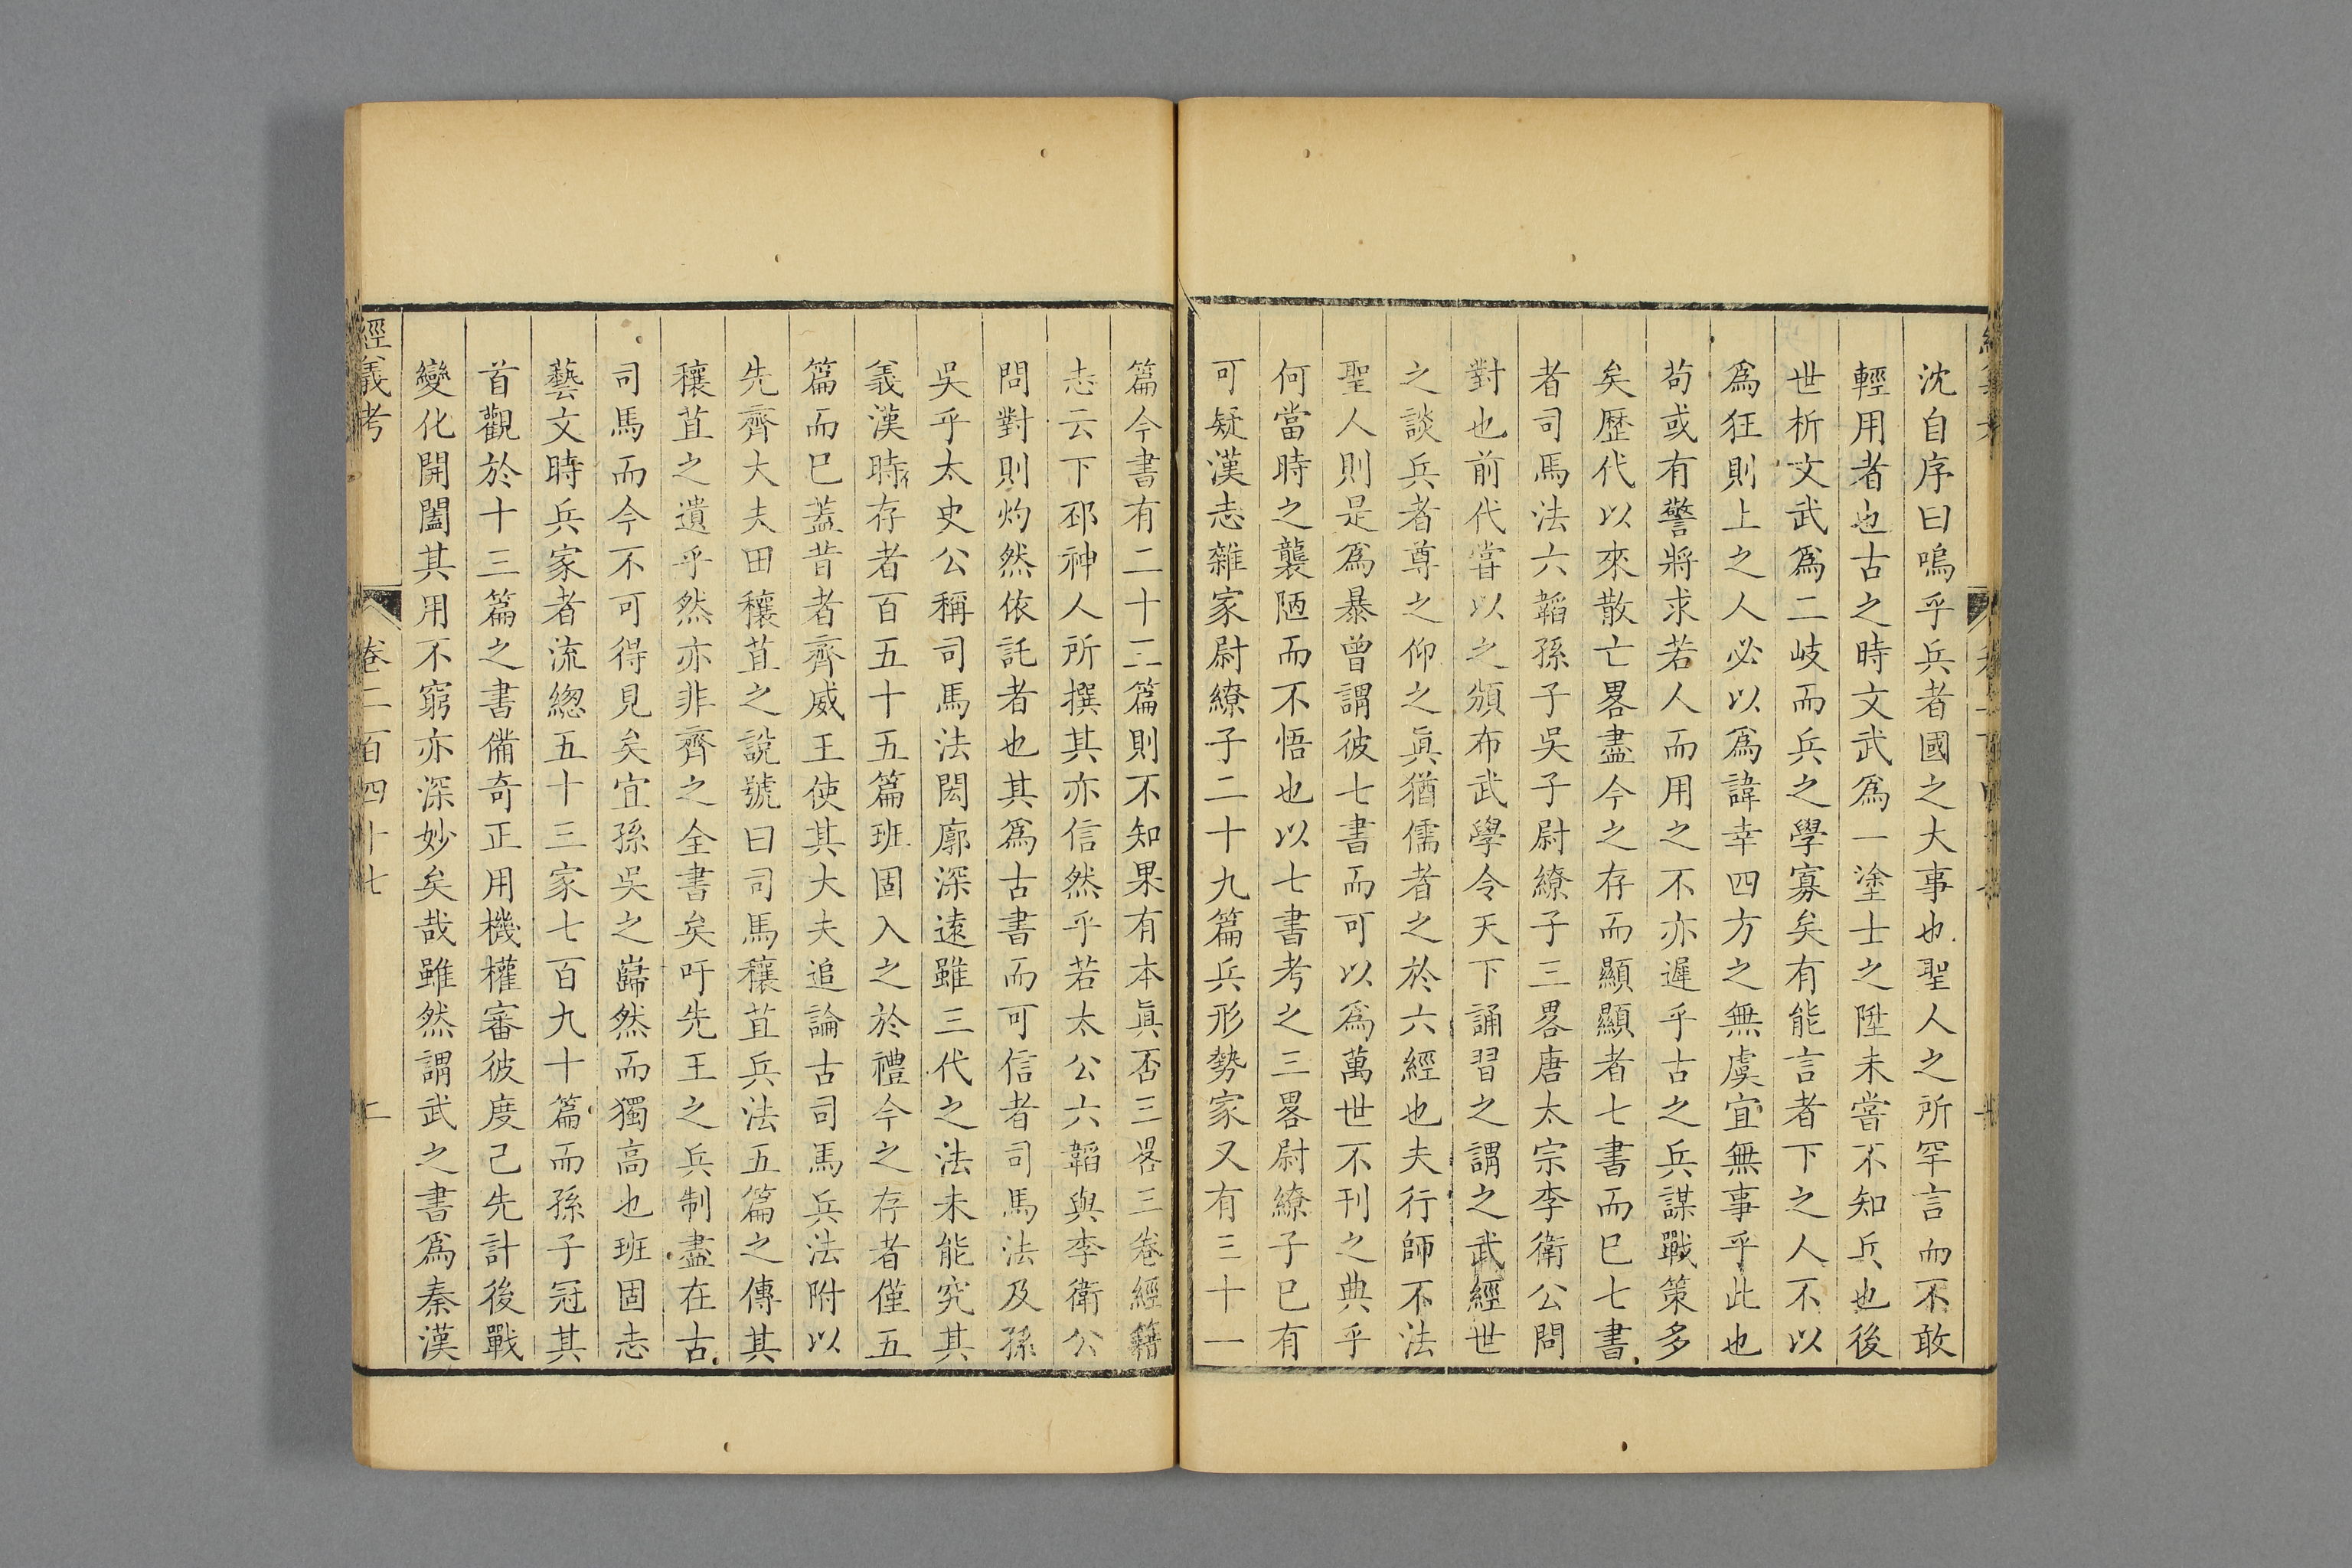 沈自序曰嗚乎兵者國之大事也聖人之所罕言而不敢
輕用者也古之時文武爲一塗士之陞未嘗不知兵也後
世析文武爲二岐而兵之學寡矣有能言者下之人不以
爲狂則上之人必以爲諱幸四方之無虞宜無事乎此也
茍或有警將求若人而用之不亦遲乎古之兵謀戰策多
矣歷代以來散亡畧盡今之存而顯顯者七書而已七書
者司馬法六韜孫子吳子尉繚子三畧唐太宗李衛公問
對也前代嘗以之頒布武學令天下誦習之謂之武經世
之談兵者尊之仰之眞猶儒者之於六經也夫行師不法
聖人則是爲暴曾謂彼七書而可以爲萬世不刊之典乎
何當時之襲陋而不悟也以七書考之三畧尉繚子已有
可疑漢志雜家尉繚子二十九篇兵形勢家又有三十一
篇今書有二十二篇則不知果有本眞否三畧三卷經籍
志云下邳神人所撰其亦信然乎若太公六韜與李衛公
問對則灼然依託者也其爲古書而可信者司馬法及孫
吳乎太史公稱司馬法閎廓深遠雖三代之法未能究其
義漢時存者百五十五篇班固入之於禮今之存者僅五
篇而已蓋昔者齊威王使其大夫追論古司馬兵法附以
先齊大夫田穰苴之說號曰司馬穰苴兵法五篇之傳其
穰苴之遺乎然亦非齊之全書矣吁先王之兵制盡在古
司馬而今不可得見矣宜孫吳之巋然而獨高也班固志
藝文時兵家者流緫五十三家七百九十篇而孫子冠其
首觀於十三篇之書備奇正用機權審彼度己先計後戰
變化開闔其用不窮亦深妙矣哉雖然謂武之書爲秦漢
經義考
卷二百四十七
二